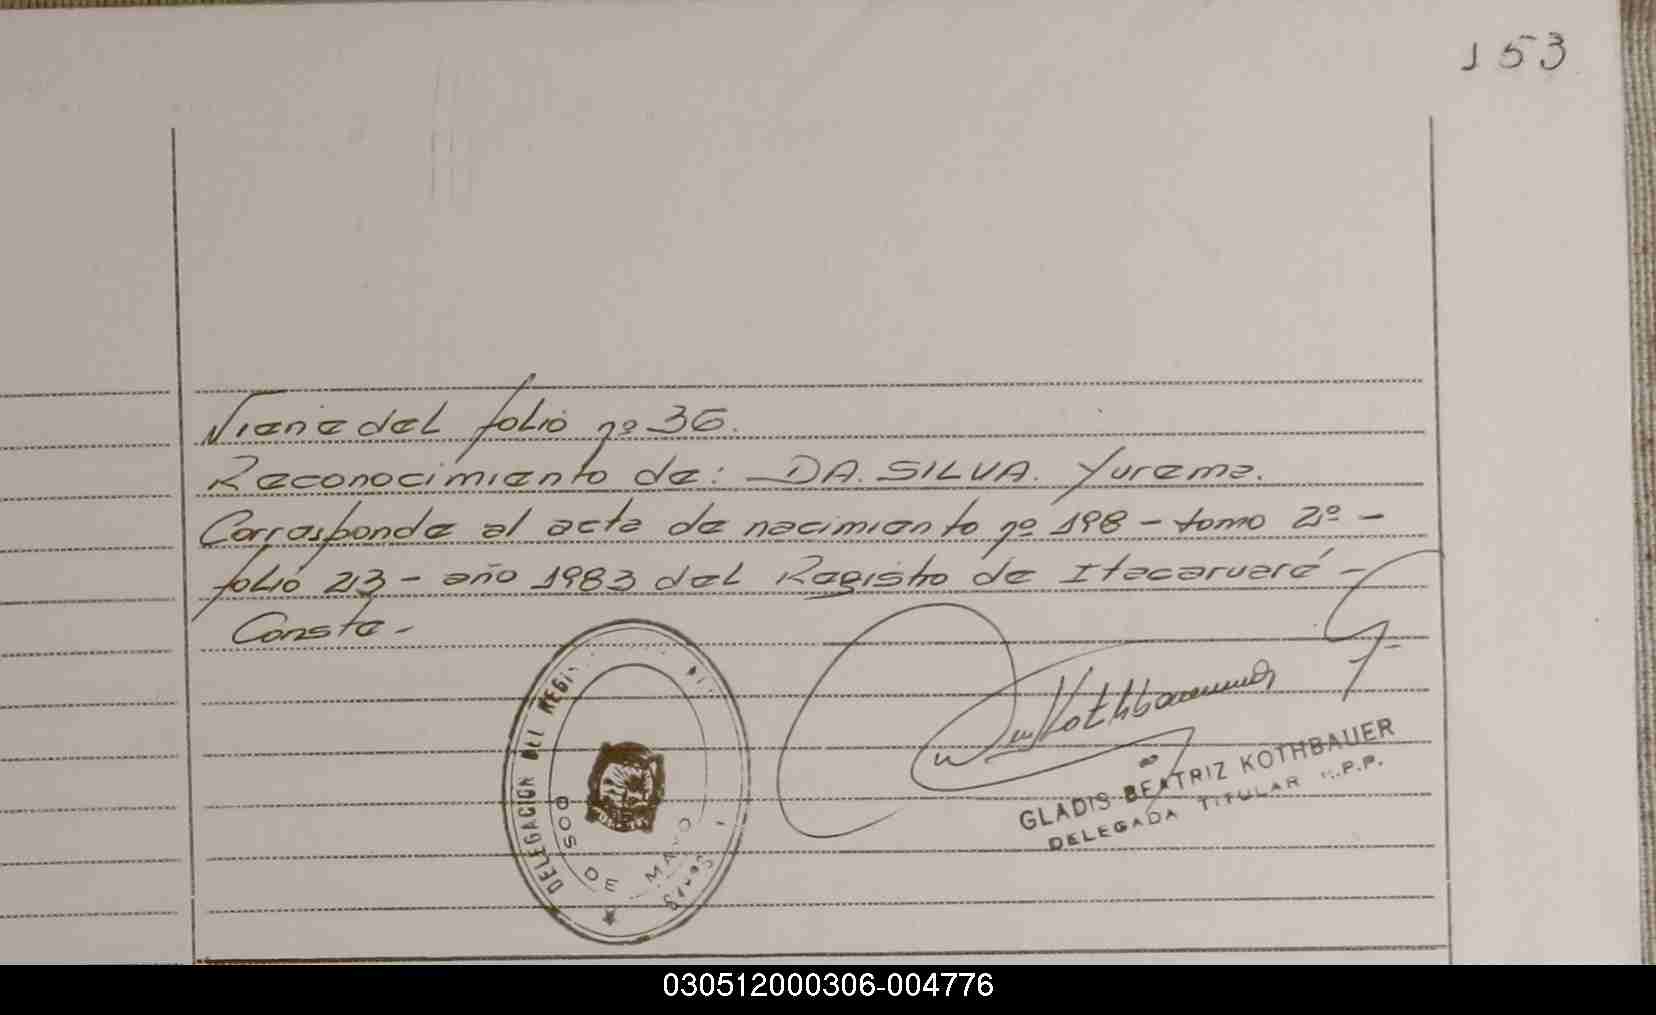 153
Viene del folio nº 36.
Reconocimiento de: - DA. SILVA. Yurema.
Corresponde al acta de nacimiento nº 198 - tomo 2º -
folio 213 - año 1983 del Registro de Itacaruaré -
Conste. -
Kothbauer
GLADIS BEATRIZ KOTHBAUER
DELEGADA TITULAR R.P.P.
DELEGACION DEL REGI
DOS DE MAYO
030512000306-004776